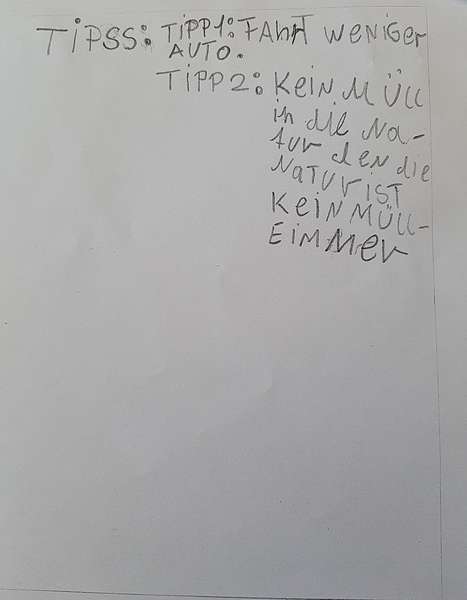 TiPSS: TiPP1: FAhRT WENiGER
AUTO.
TiPP2: KeiN MÜll
in die Na-
tur den die
NaTUR iST
KeiN MÜll-
EiMMer